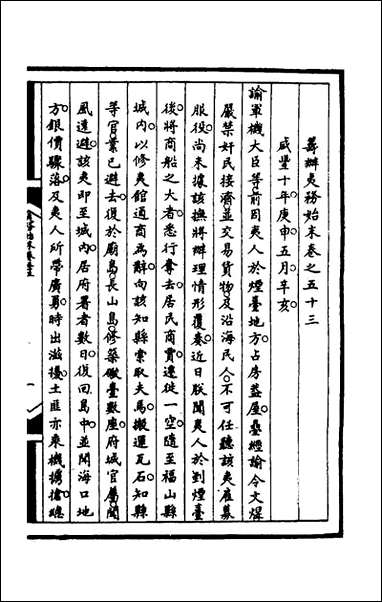 籌辦夷務始末卷之五十三
咸豐十年庚申五月辛亥
諭軍機大臣等前因夷人於煙臺地方占房蓋屋疊經諭令文煜
嚴禁奸民接濟並交易貨物及沿海民人不可任聽該夷雇募
服役尚未據該撫將辦理情形覆奏近日朕聞夷人於到煙臺
後將商船之大者悉行奪去居民商賈遷徙一空隨至福山縣
城內以修夷館通商為辭向該知縣索取夫馬搬運瓦石知縣
等官業已避去復於廟島長山島修築礮臺數座府城官屬聞
風遠避該夷即至城內居府署者數日復回島中並聞海口地
方銀價驟落及夷人所帶廣勇時出滋擾土匪亦乘機搶總